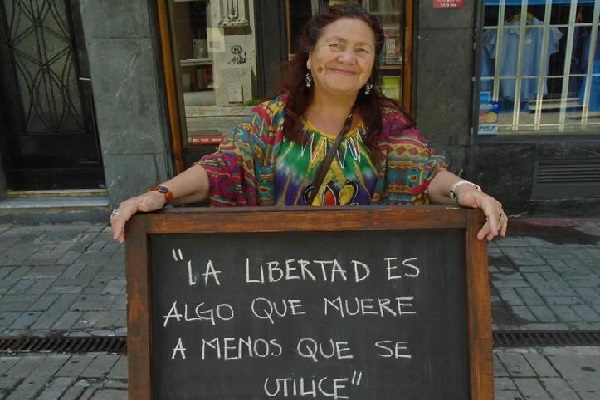 "LA LIBERTAD ES
ALGO QUE MUERE
A MENOS QUE SE
UTILICE"